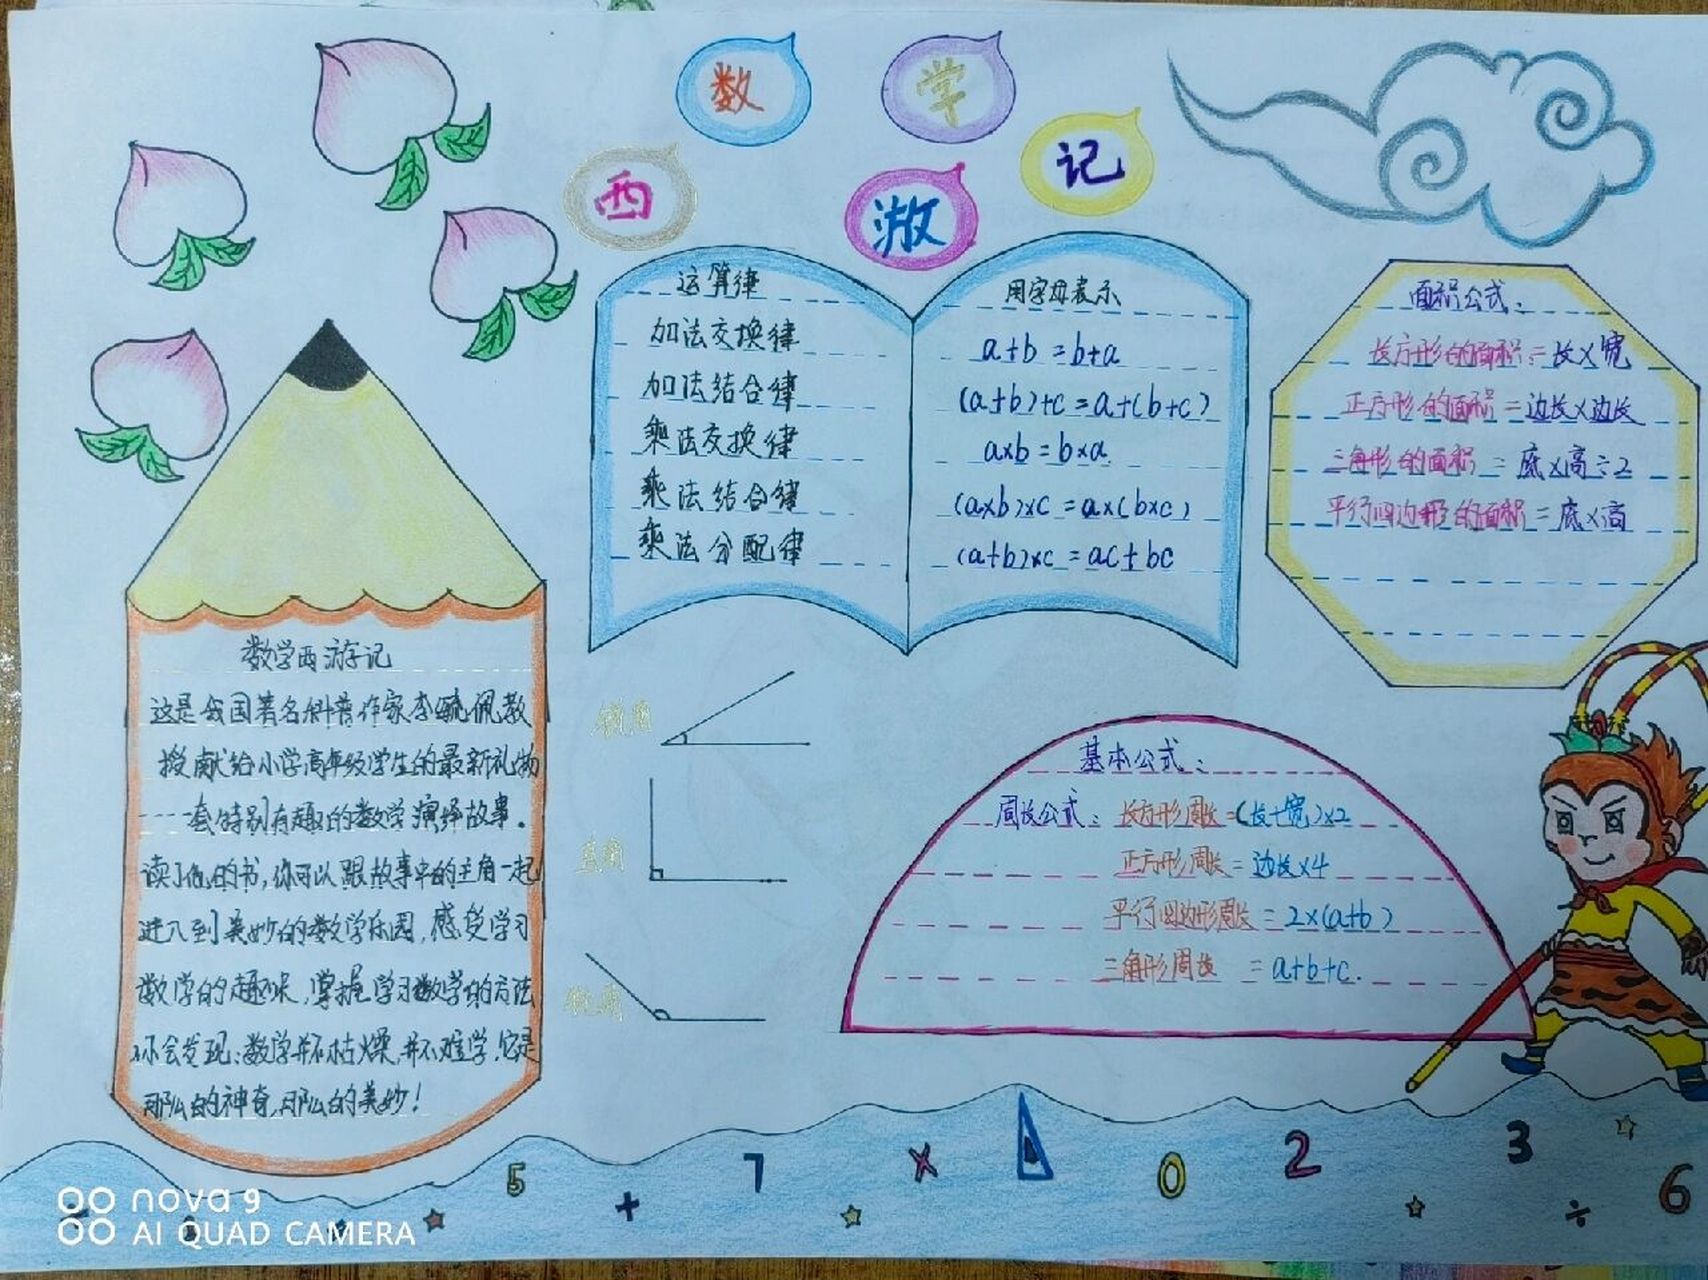 数学
西游记
运算律
加法交换律
加法结合律
乘法交换律
乘法结合律
乘法分配律
用字母表示
a+b=b+a
(a+b)+c=a+(b+c)
a×b=b×a
(a×b)×c=a×(b×c)
(a+b)×c=ac+bc
面积公式:
长方形的面积=长×宽
正方形的面积=边长×边长
三角形的面积=底×高÷2
平行四边形的面积=底×高
数学西游记
这是我国著名科普作家李毓佩教
授献给小学高年级学生的最新礼物
一套特别有趣的数学演绎故事。
读了他的书,你可以跟故事中的主角一起
进入到美妙的数学乐园,感受学习
数学的趣味,掌握学习数学的方法
你会发现:数学并不枯燥,并不难学,它是
那么的神奇,那么的美妙!
锐角
直角
钝角
基本公式:
周长公式:长方形周长=(长+宽)×2
正方形周长=边长×4
平行四边形周长=2×(a+b)
三角形周长=a+b+c.
5 + 7 × 0 2 3 ÷ 6
nova 9
AI QUAD CAMERA